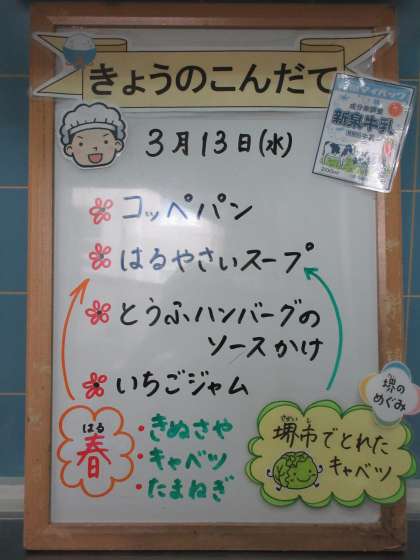 きょうのこんだて
3月13日(水)
新泉牛乳
コッペパン
はるやさいスープ
とうふハンバーグの
ソースかけ
いちごジャム
堺の
めぐみ
はる
春
・きぬさや
・キャベツ
・たまねぎ
堺市でとれた
キャベツ